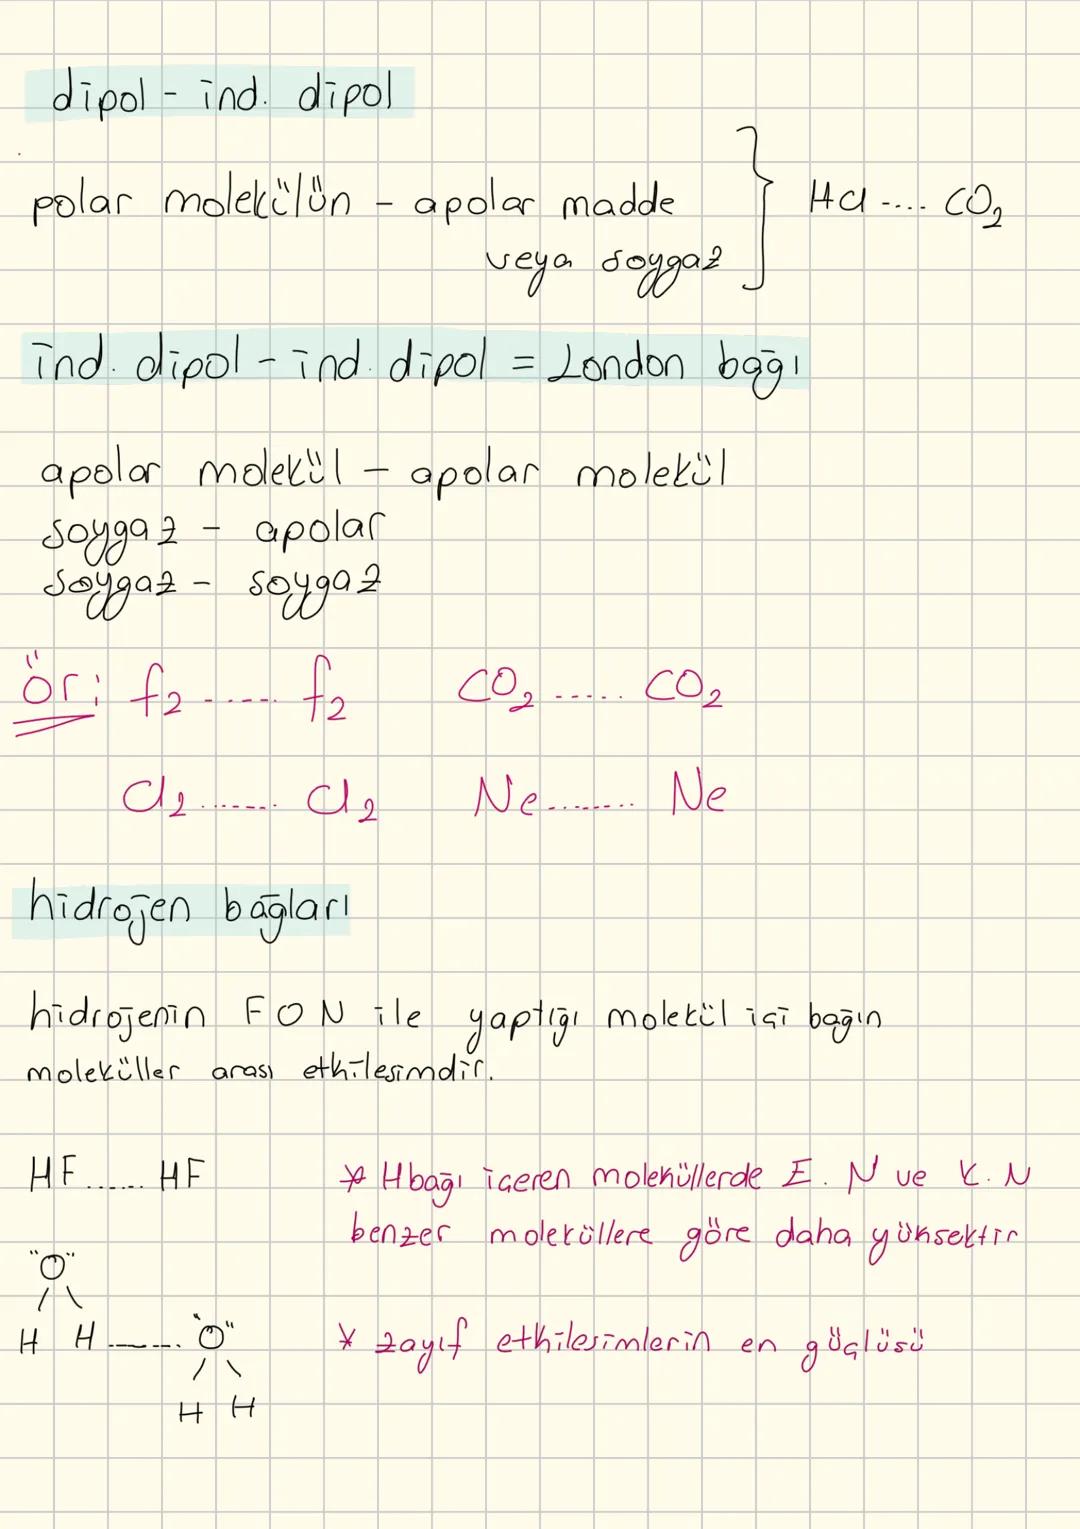 dipol - ind. dipol
polar molekülün - apolar madde
veya soygaz
HCl .... CO2
ind. dipol - ind. dipol = London bağı
apolar molekül - apolar molekül
soygaz - apolar
soygaz - soygaz
ör: f2 ...... f2 CO2 ...... CO2
Cl2 ....... Cl2 Ne ........ Ne
hidrojen bağları
hidrojenin FON ile yaptığı molekül içi bağın
moleküller arası etkilesimdir.
HF ...... HF
* H bağı içeren moleküllerde E.N ve K.N
benzer moleküllere göre daha yüksektir
O
H H ------- O
H H
* zayıf etkilesimlerin en güçlüsü